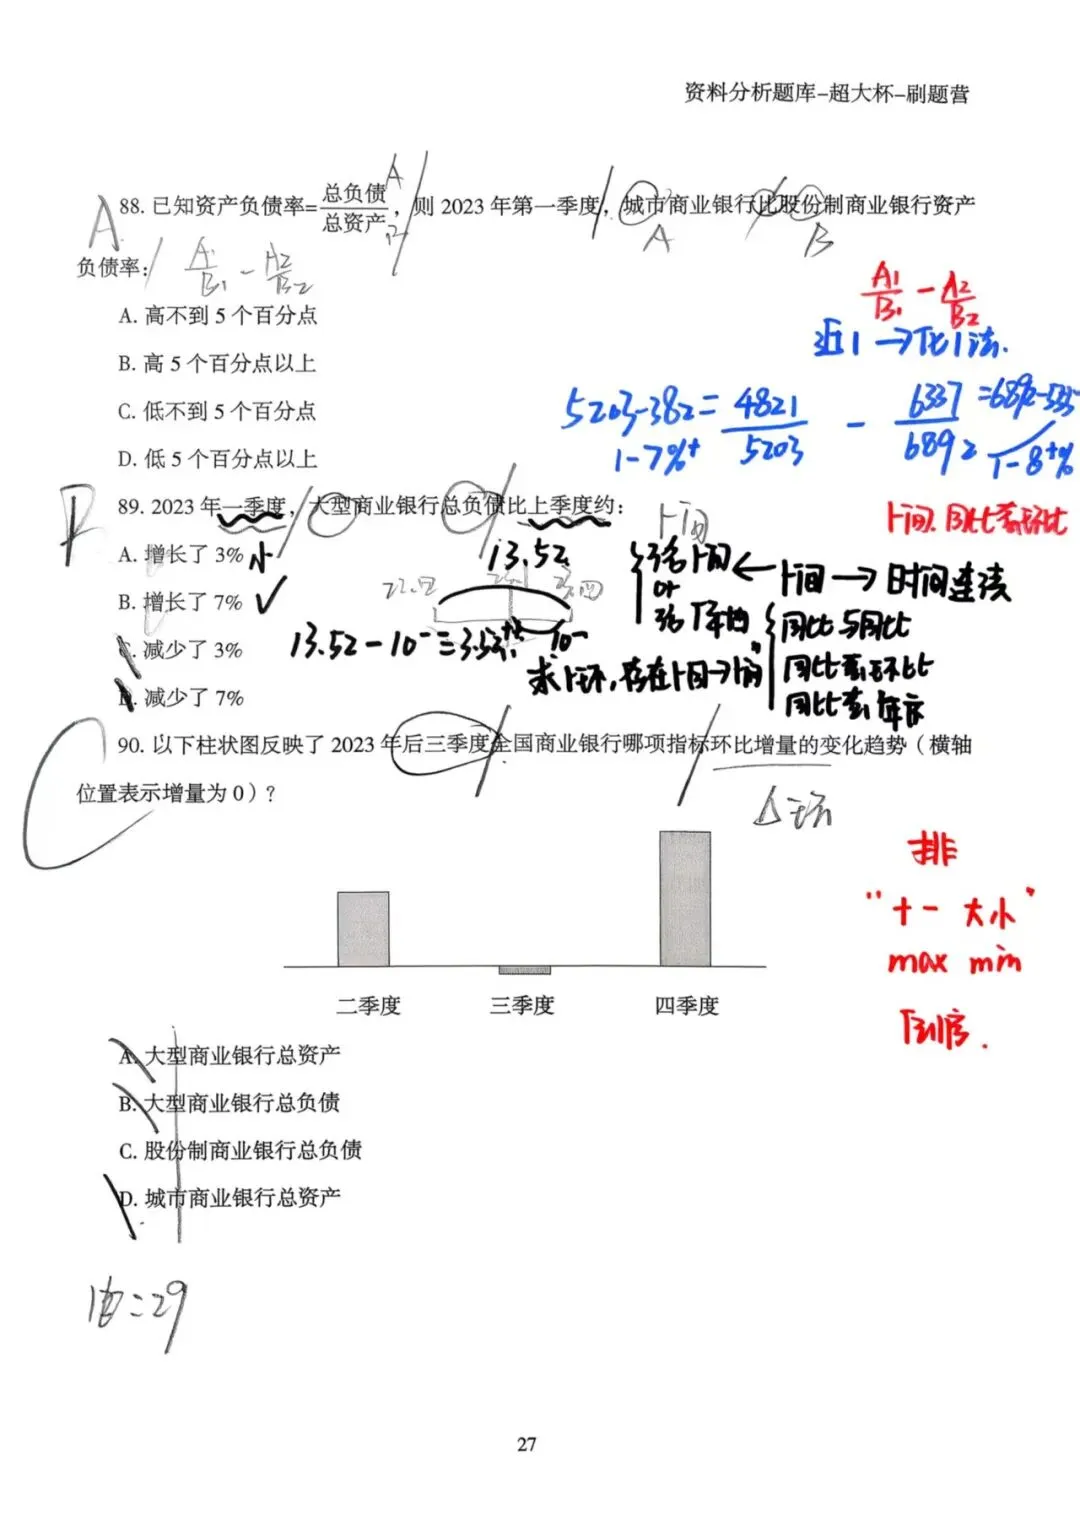 资料分析题库-超大杯-刷题营
A
88. 已知资产负债率=总负债/总资产，则 2023 年第一季度，城市商业银行比股份制商业银行资产
A
B
负债率：
A1/B1 - A2/B2
A1/B1 - A2/B2
A. 高不到 5 个百分点
近1 → 化1法.
B. 高 5 个百分点以上
C. 低不到 5 个百分点
5203-382= 4821/5203 - 6337/6892
1-7%+
1-8+%
D. 低 5 个百分点以上
89. 2023 年一季度，大型商业银行总负债比上季度约：
A. 增长了 3%
13.52
B. 增长了 7%
时间连读
同比与同比
C. 减少了 3%
13.52-10⁻=3.52+
10⁻
D. 减少了 7%
90. 以下柱状图反映了 2023 年后三季度全国商业银行哪项指标环比增量的变化趋势（横轴
位置表示增量为 0）？
Δ环
排
"十一 大小"
max min
二季度 三季度 四季度
A. 大型商业银行总资产
B. 大型商业银行总负债
C. 股份制商业银行总负债
D. 城市商业银行总资产
=29
27